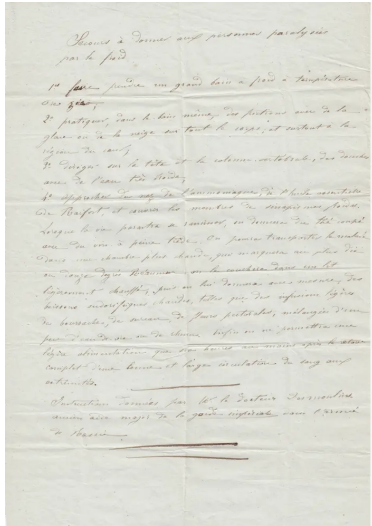 Secours à donner aux personnes paralysées
par le froid
1° faire prendre un grand bain à froid à température
2° pratiquer, dans le bain même, des frictions avec de la
glace ou de la neige sur tout le corps, et surtout à la
région du cœur;
3° diriger sur la tête et la colonne vertébrale, des douches
avec de l'eau très froide;
4° approcher du nez de l'ammoniaque, de l'huile
de Raifort et couvrir les membres de sinapismes
Lorsque la vie paraîtra se ranimer, on donnera du thé
avec du vin à peine tiède. On pourra transporter le malade
dans une chambre plus chaude, qui marquera au plus dix
ou douze degrés Réaumur on le couchera dans un lit
légèrement chauffé, puis on lui donnera des
boissons sudorifiques, chaudes, telles que des infusions légères
de bourrache, de sureau, de fleurs pectorales, mélangées d'un
peu d'eau de vie ou de rhum enfin on ne permettra une
légère alimentation que
complet d'une bonne et large circulation du sang aux
extrémités.
Instructions données par Mr le docteur
ancien aide major de la garde impériale dans l'armée
de Russie.